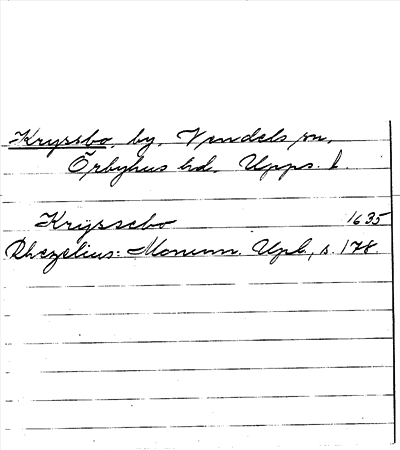 Kryssbo, by, Vendels sn,
Örbyhus hd, Upps. l.
Kryssebo 1635
Rhezelius: Monum. Upl., s. 178.